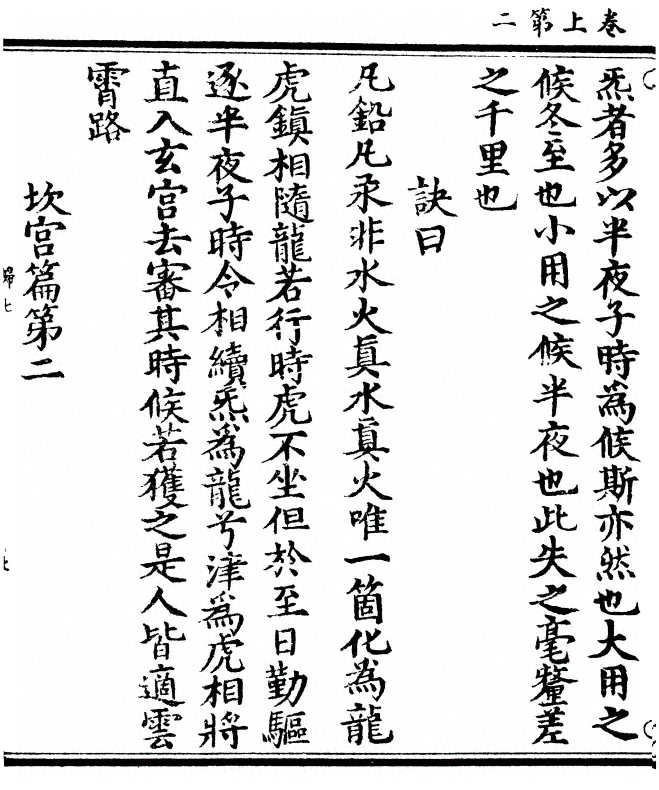 卷上第二
炁者多以半夜子時爲候斯亦然也大用之
候冬至也小用之候半夜也此失之毫釐差
之千里也
訣曰
凡鉛凡汞非水火眞水眞火唯一箇化為龍
虎鎮相隨龍若行時虎不坐但於至日勤驅
逐半夜子時令相續炁爲龍兮津爲虎相將
直入玄宮去審其時候若獲之是人皆適雲
霄路
坎宮篇第二